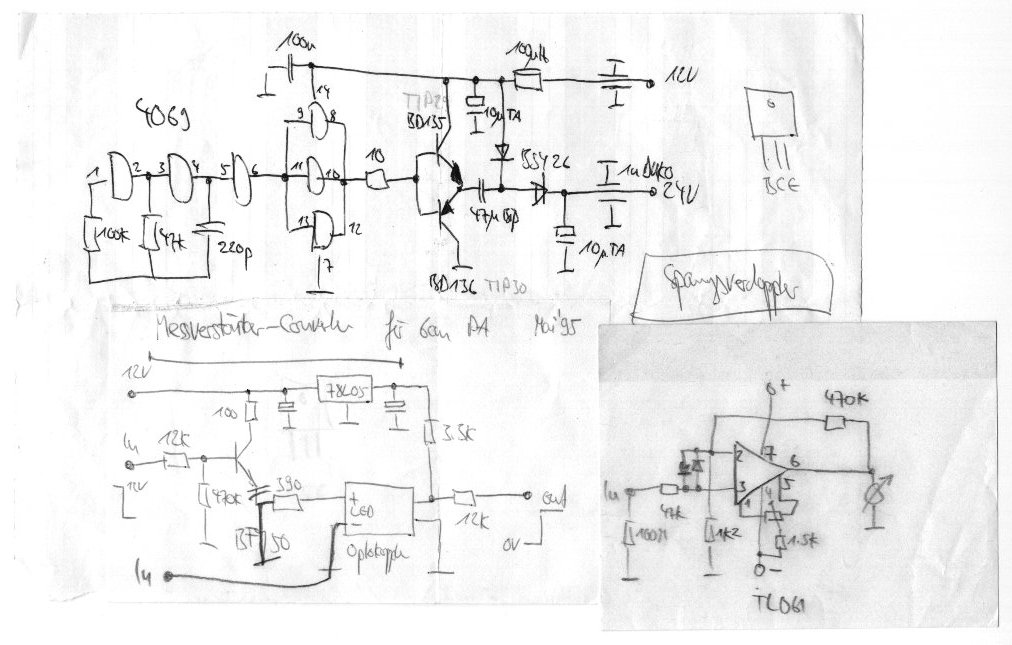 100u
100µH
12V
14
TIP29
10µTA
BD135
4069
9
8
1
2
3
4
5
6
11
10
10
BSY26
1u
24V
47µ Bip
13
12
100k
47k
220p
7
10µTA
BD136
TIP30
BCE
Messverstärker-
für 6cm PA
Mai '95
12V
78L05
100
3.5K
In
12K
12V
470k
390
+
LED
-
out
12K
0V
BF
50
In
0+
470K
2
7
6
3
5
1
4
In
47k
1k2
1.5k
0-
TL061